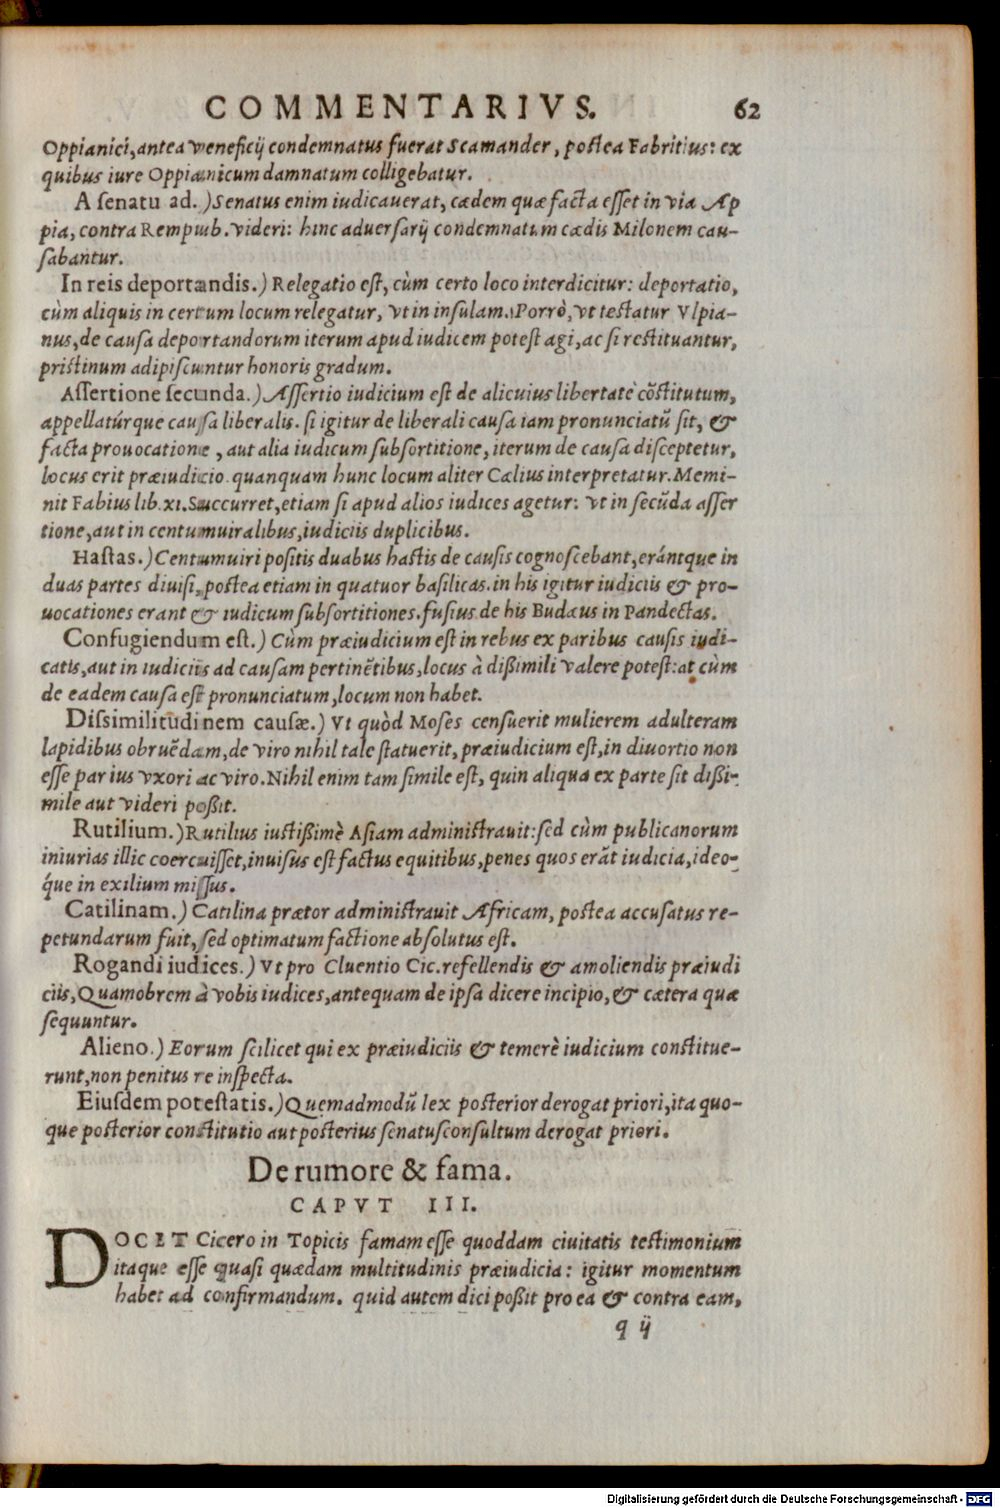 COMMENTARIVS. 62
Oppianici, antea veneficij condemnatus fuerat Scamander, postea Fabritius: ex
quibus iure Oppianicum damnatum colligebatur.
A senatu ad.) Senatus enim iudicauerat, cædem quæ facta esset in via Ap
pia, contra Rempub. videri: hinc aduersarij condemnatum cædis Milonem cau-
sabantur.
In reis deportandis.) Relegatio est, cùm certo loco interdicitur: deportatio,
cùm aliquis in certum locum relegatur, vt in insulam. Porrò, vt testatur Vlpia-
nus, de causa deportandorum iterum apud iudicem potest agi, ac si restituantur,
pristinum adipiscuntur honoris gradum.
Assertione secunda.) Assertio iudicium est de alicuius libertate cõstitutum,
appellatúrque causa liberalis. si igitur de liberali causa iam pronunciatũ sit, &
facta prouocatione, aut alia iudicum subsortitione, iterum de causa disceptetur,
locus erit præiudicio. quanquam hunc locum aliter Cælius interpretatur. Memi-
nit Fabius lib. xi. Succurret, etiam si apud alios iudices agetur: vt in secũda asser
tione, aut in centumuiralibus, iudiciis duplicibus.
Hastas.) Centumuiri positis duabus hastis de causis cognoscebant, erántque in
duas partes diuisi, postea etiam in quatuor basilicas. in his igitur iudiciis & pro-
uocationes erant & iudicum subsortitiones. fusius de his Budæus in Pandectas.
Confugiendum est.) Cùm præiudicium est in rebus ex paribus causis iudi-
catis, aut in iudiciis ad causam pertinẽtibus, locus à dißimili valere potest: at cùm
de eadem causa est pronunciatum, locum non habet.
Dissimilitudinem causæ.) Vt quòd Moses censuerit mulierem adulteram
lapidibus obruẽdam, de viro nihil tale statuerit, præiudicium est, in diuortio non
esse par ius vxori ac viro. Nihil enim tam simile est, quin aliqua ex parte sit dißi-
mile aut videri poßit.
Rutilium.) Rutilius iustißimè Asiam administrauit: sed cùm publicanorum
iniurias illic coercuisset, inuisus est factus equitibus, penes quos erãt iudicia, ideo-
q́ue in exilium missus.
Catilinam.) Catilina prætor administrauit Africam, postea accusatus re-
petundarum fuit, sed optimatum factione absolutus est.
Rogandi iudices.) Vt pro Cluentio Cic. refellendis & amoliendis præiudi
ciis, Quamobrem à vobis iudices, antequam de ipsa dicere incipio, & cætera quæ
sequuntur.
Alieno.) Eorum scilicet qui ex præiudiciis & temerè iudicium constitue-
runt, non penitus re inspecta.
Eiusdem potestatis.) Quemadmodũ lex posterior derogat priori, ita quo-
que posterior constitutio aut posterius senatusconsultum derogat priori.
De rumore & fama.
CAPVT III.
DOCET Cicero in Topicis famam esse quoddam ciuitatis testimonium
itaque esse quasi quædam multitudinis præiudicia: igitur momentum
habet ad confirmandum. quid autem dici poßit pro ea & contra eam,
q ij
Digitalisierung gefördert durch die Deutsche Forschungsgemeinschaft - DFG